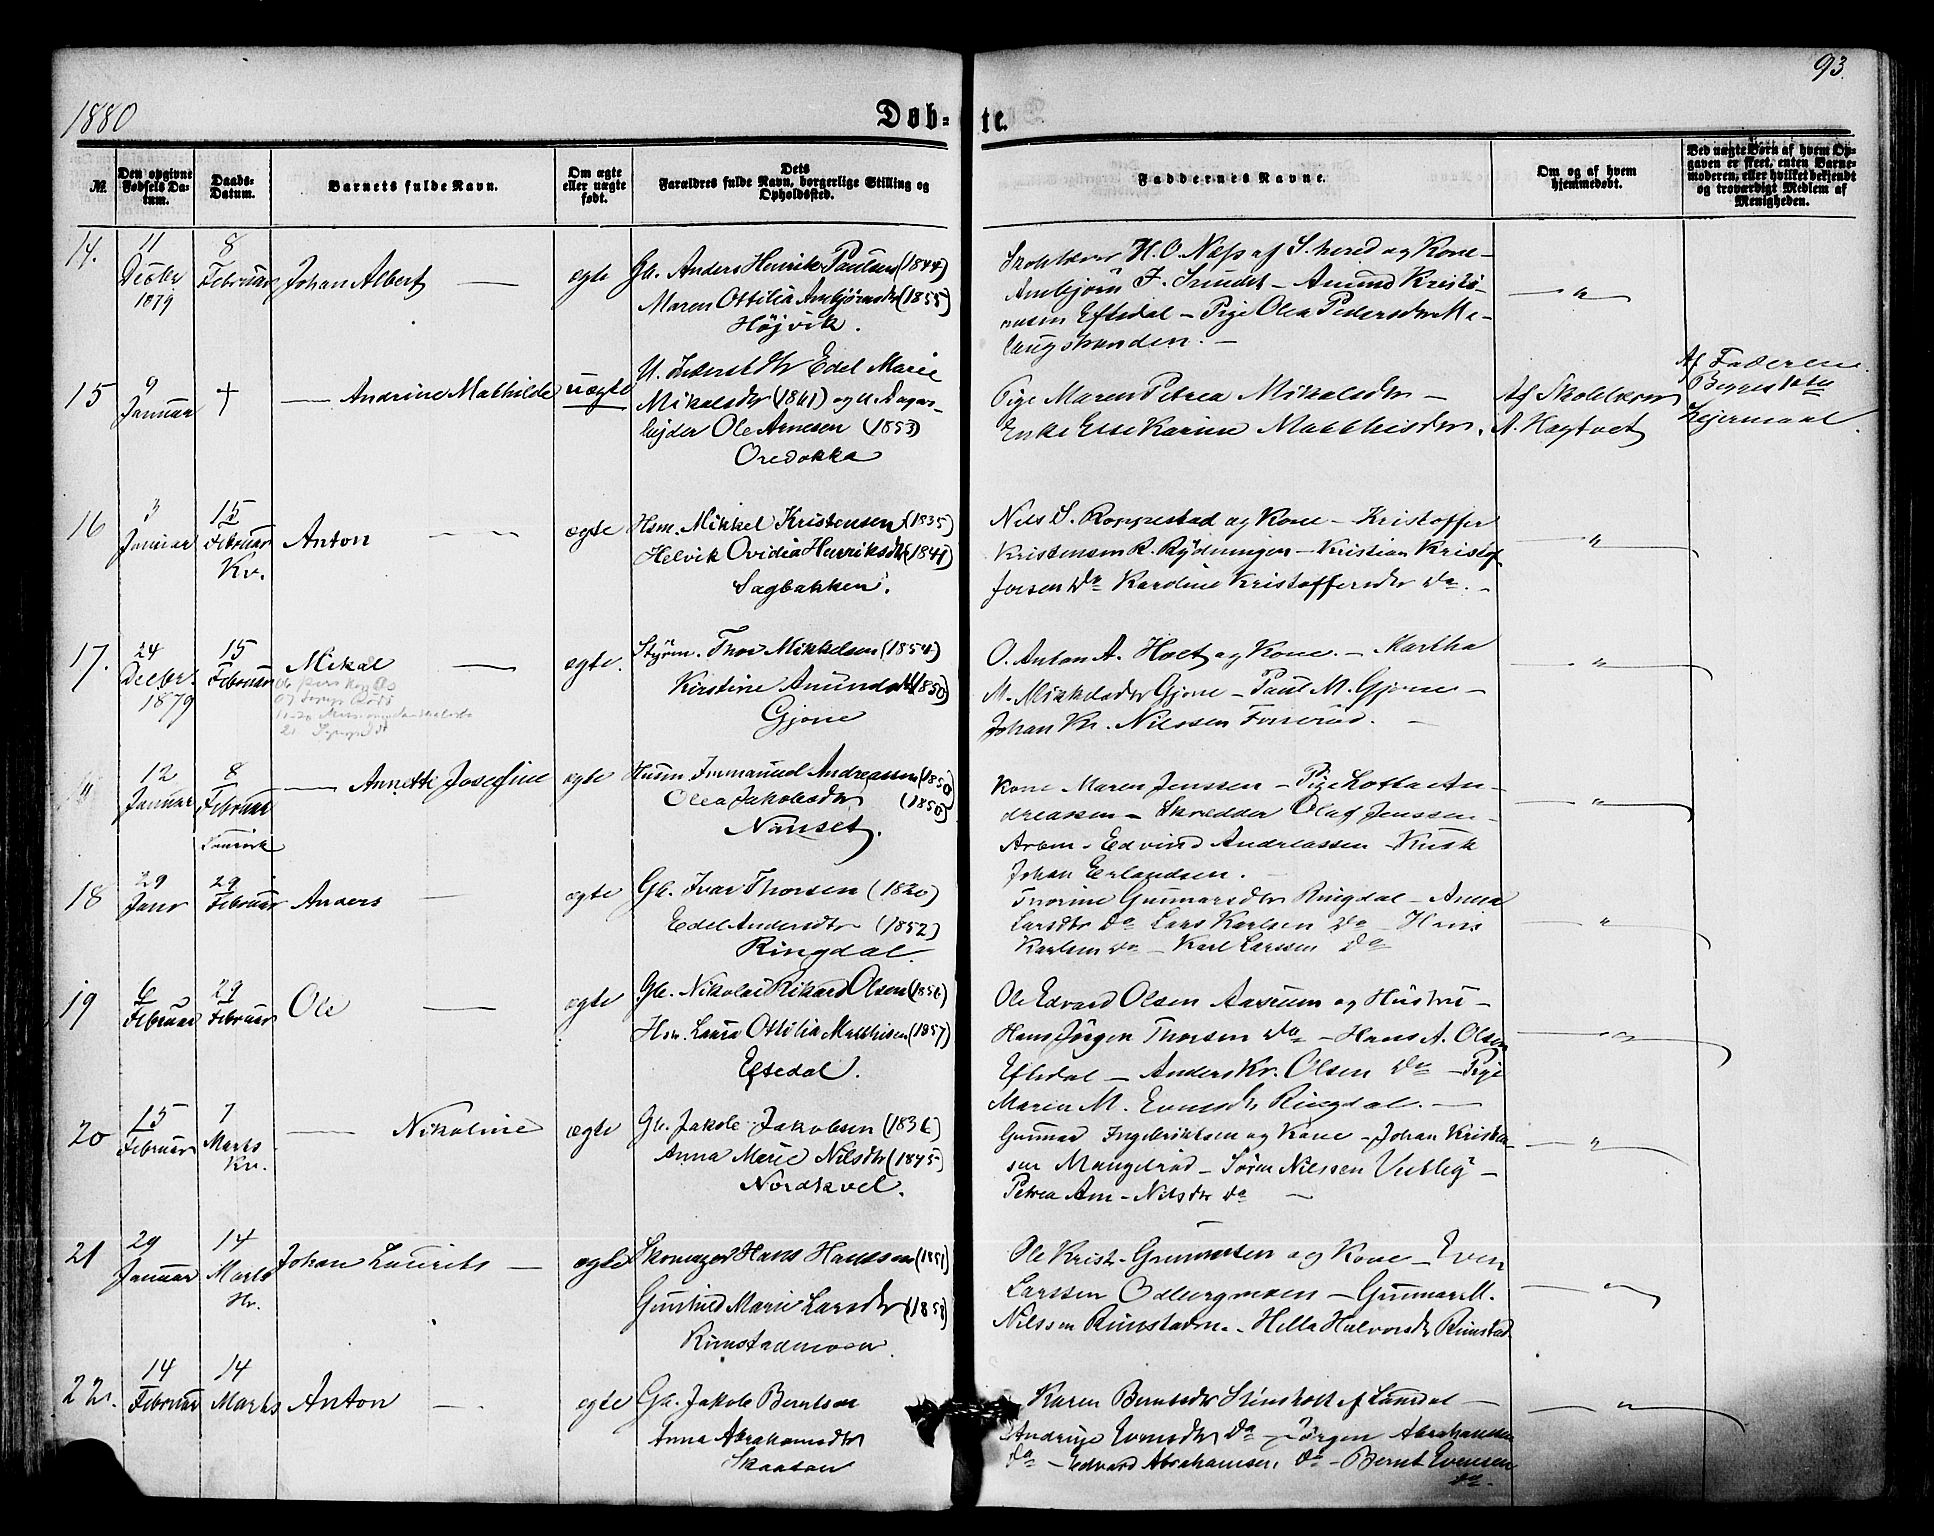 93.
1880
Døb-
te.
№.
Den opgivne
Fødsels Da-
tum.
Daabs-
Datum.
Barnets fulde Navn.
Om ægte
eller uægte
født.
Dets
Forældres fulde Navn, borgerlige Stilling og
Opholdssted.
Faddernes Navne.
Om og af hvem
hjemmedøbt.
Ved uægte Børn af hvem Op-
gaven er skeet, enten Barne-
moderen, eller hvilket bekjendt
og troværdigt Medlem af
Menigheden.
14.
11
Decbr
1879
8
Februar
Johan Albert —
ægte
Gb. Anders Henrik Paulsen (1844)
Maren Ottilia Arnbjørnsdtr (1855)
Højvik.
Skolelærer H. O. Næss af S. hered og Kone —
Arnbjørn J. — Amund Kristi-
Eftedal — Pige Olea Pedersdtr
—„—
15
9
Januar
†
— Andrine Mathilde
uægte
U. Edel Marie
Mikalsdtr (1861) og U. Dagar-
bejder Ole Arnesen (1853)
Oredokka
Pige Maren Petrea Mikalsdtr —
Enke Else Karine Matthisdtr.
Af Skolelærer
A. Hagtvet
Af Faderen.
Begges 1ste
Lejermaal.
16
Januar
15
Februar
Kv.
Anton — —
ægte
Hsm. Mikkel Kristensen (1835)
Helvik Ovidia Henriksdtr (1841)
Sagbakken.
Nils S. Roppestad og Kone — Kristoffer
Kristensen R. Rydningen — Kristian Kristof
fersen Do Karoline Kristoffersdtr Do. —
—„—
17.
24
Decbr.
1879
15
Februar
Mikal —
ægte.
Styrm. Thor Mikkelsen (1854)
Kirstine Amundsdtr (1850)
Gjone
O. Anton A. Holt og Kone. — Martha
M. Mikkelsdtr Gjone — Paul M. Gjone —
Johan Kr. Nilssen —
—„—
"
12
Januar
8
Februar
— Annette Josefine
ægte
Husm Immanuel Andreassen (1850)
Olea Jakobsdtr (1850)
Nanset.
Kone Maren Jenssen — Pige Lotta An-
dreassen — Skredder Olaf Jenssen —
Arbm. Edvind Andreassen — Kusk
Johan Erlandsen. —
—„—
18
29
Janr
29
Februar
Anders —
ægte
Gb. Ivar Thorsen (1820)
Edel Andersdtr (1852)
Ringdal.
Thorine Gunnarsdtr Ringdal — Anna
Larsdtr Do Lars Karlsen Do — Hans
Karlsen Do — Karl Larssen Do
—„—
19
6
Februar
29
Februar
Ole —
ægte
Gb. Nikolai Rikard Olsen (1856)
Hsn. Laura Ottilia Matthisen (1857)
Eftedal.
Ole Edvard Olsen Aasrum og Hustru —
Hans Jørgen Thorsen Do — Hans A. Olsen
Eftedal — Anders Kr. Olsen Do — Pige
Maren M. Evensdtr Ringdal. —
—„—
20
15
Februar
7
Marts
Kv.
— Nikoline
ægte
Gb. Jakob Jakobsen (1836)
Anna Marie Nilsdtr (1845)
Nordkvel.
Gunnar Ingebriktsen og Kone — Johan Kristen-
sen Mangelrød — Søren Nilssen Vestby —
Petrea Am — Nilsdtr Do —
—„—
21
29
Januar
14
Marts
Hv.
Johan Laurits —
ægte
Skomager Hans Hanssen (1851)
Gunhild Marie Larsdtr (1858)
Rimstadmoen
Ole Krist. Gunnarsen og Kone — Even
Larssen Odbergmoen — Gunnar M.
Nilssen Rimstadm. — Hella Halvorsdtr Rimstad
—„—
22.
14
Februar
14
Marts
Anton —
ægte
Gb. Jakob Berntsen
Anna Abrahamsdtr
Skaatan
Karen Berntsdtr Stensholt af Laurdal —
Andrine Evensdtr Do — Jørgen Abrahamsen
Do — Edvard Abrahamsen Do — Bernt Evensen
Do.
—„—